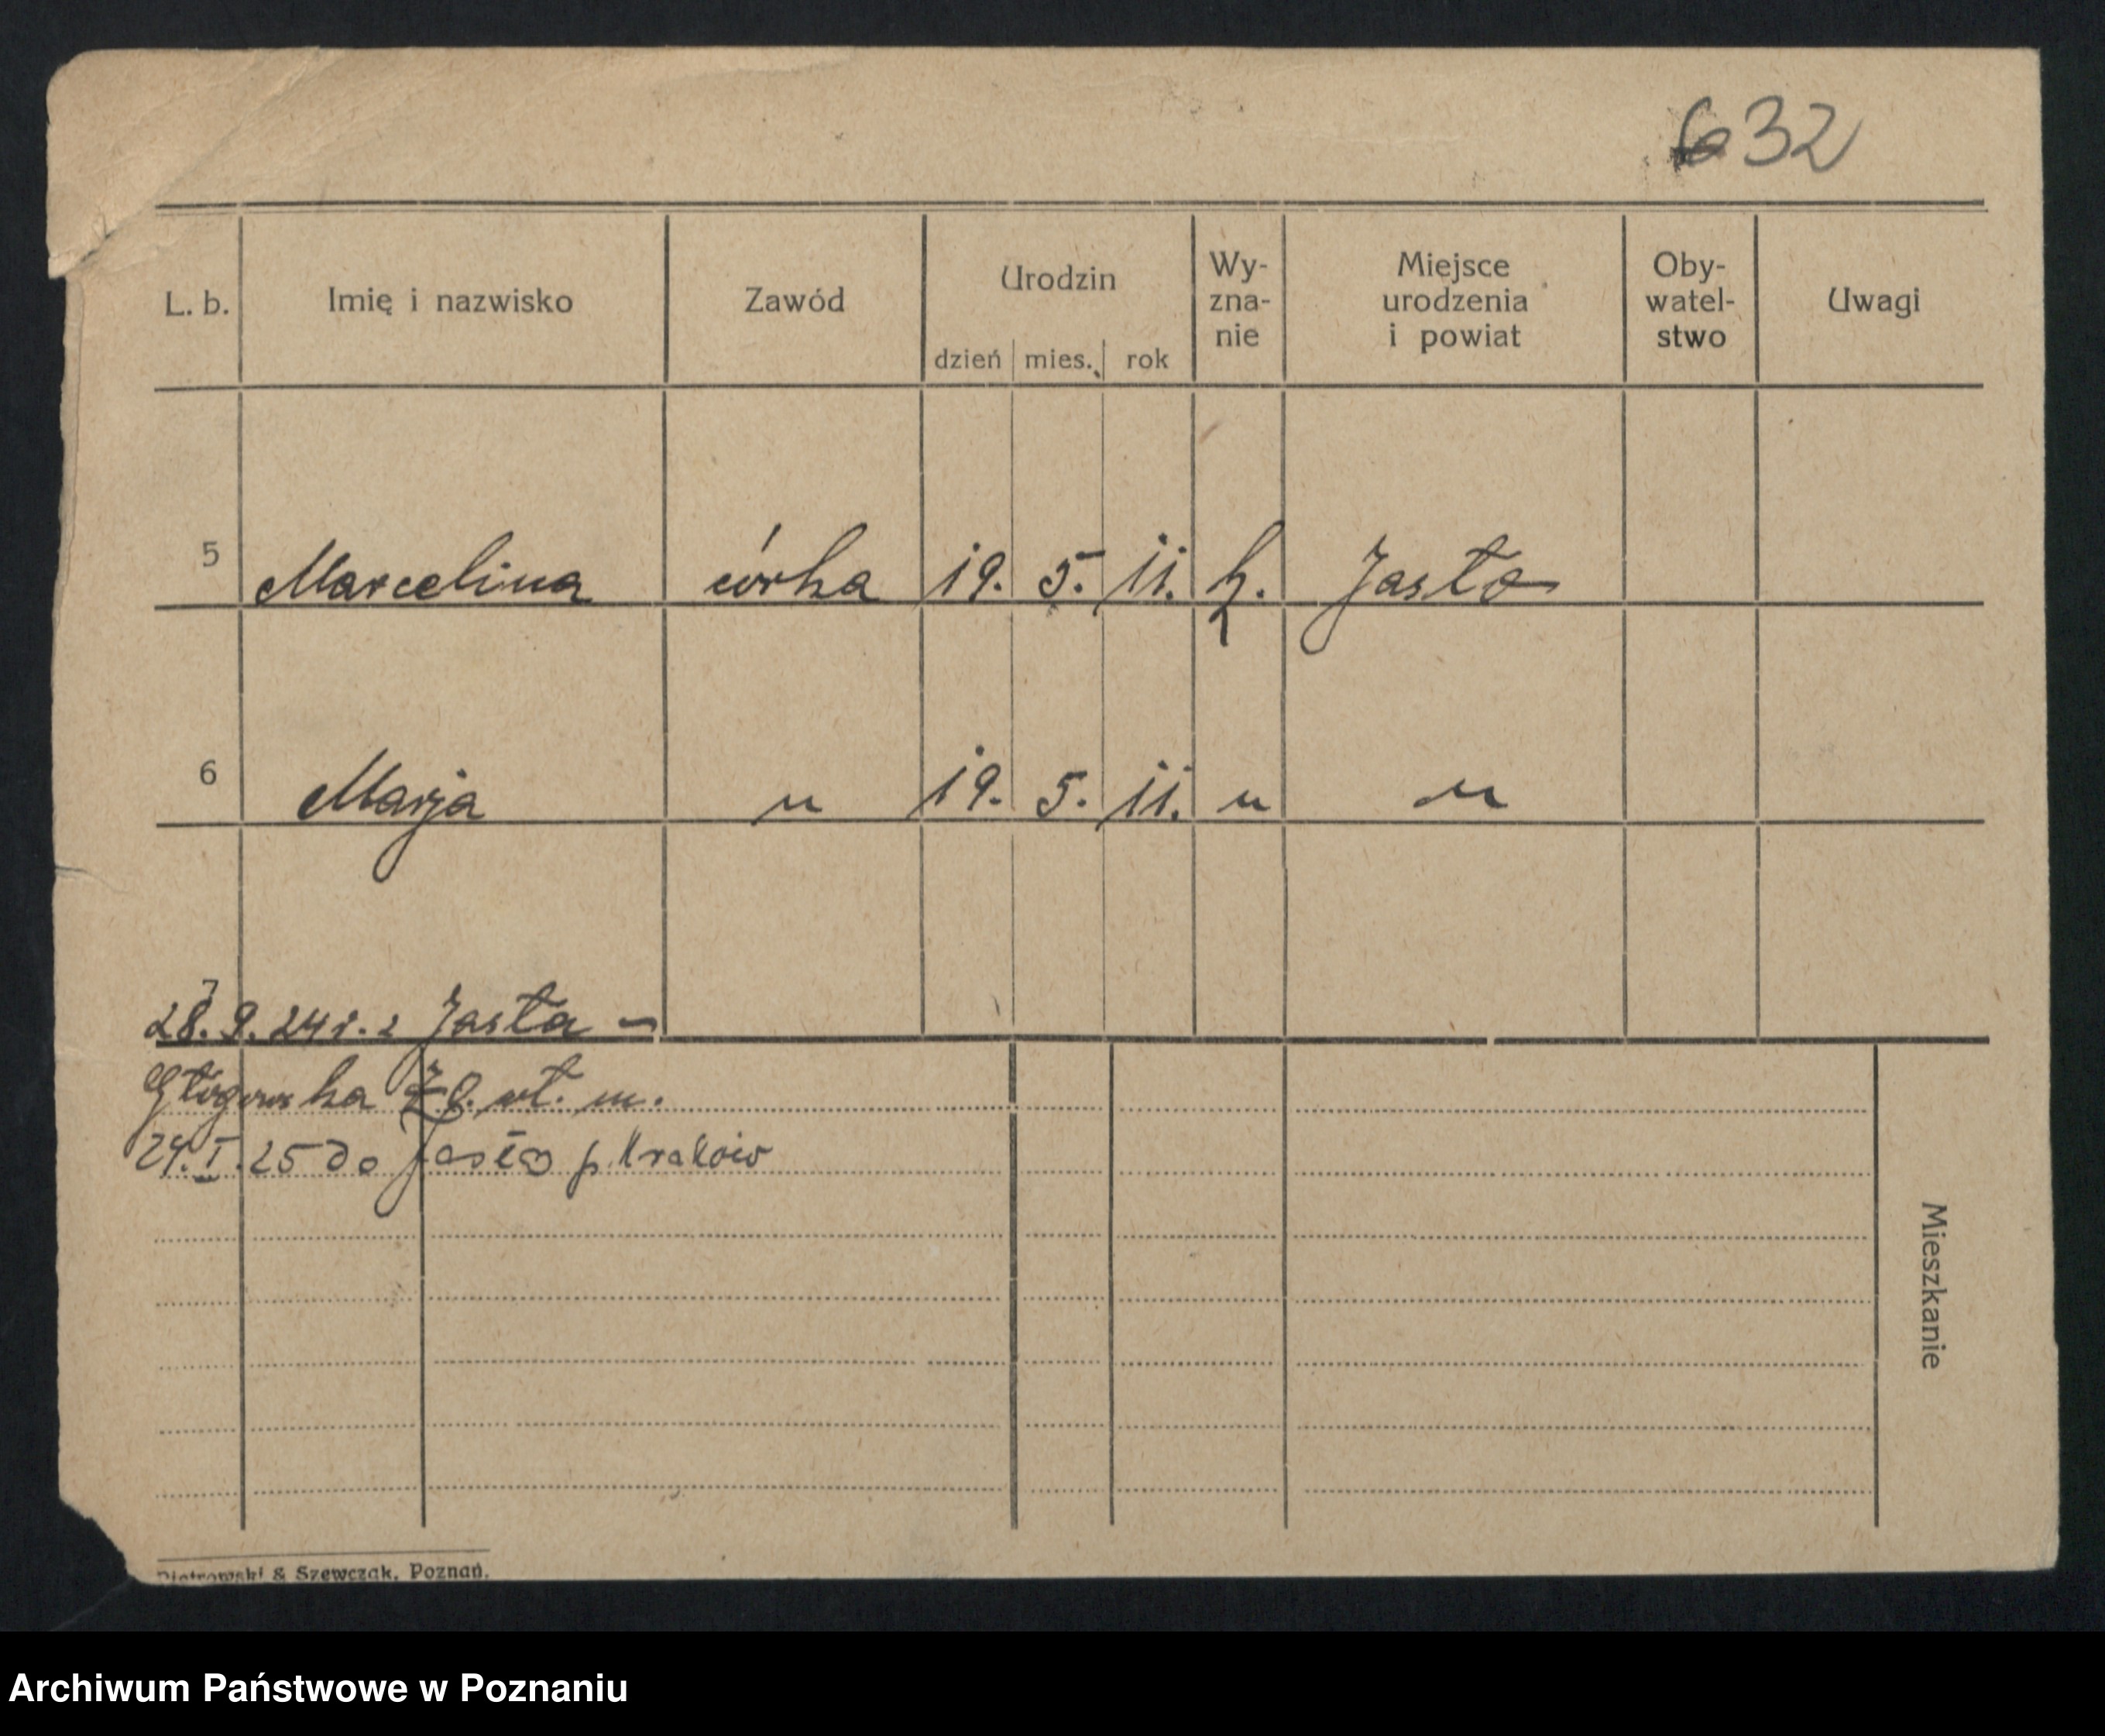 632
L. b. Imię i nazwisko Zawód Urodzin dzień mies. rok Wy-zna-nie Miejsce urodzenia i powiat Oby-watel-stwo Uwagi
5 Marcelina córka 19. 5. 11. k. Jasło
6 Marja " 19. 5. 11. " "
7
28. 9. 24 r. z Jasła -
Głogowska wł. m.
24. I. 25 do Jasło p. Kraków
Mieszkanie
Piotrowski & Szewczak, Poznań.
Archiwum Państwowe w Poznaniu